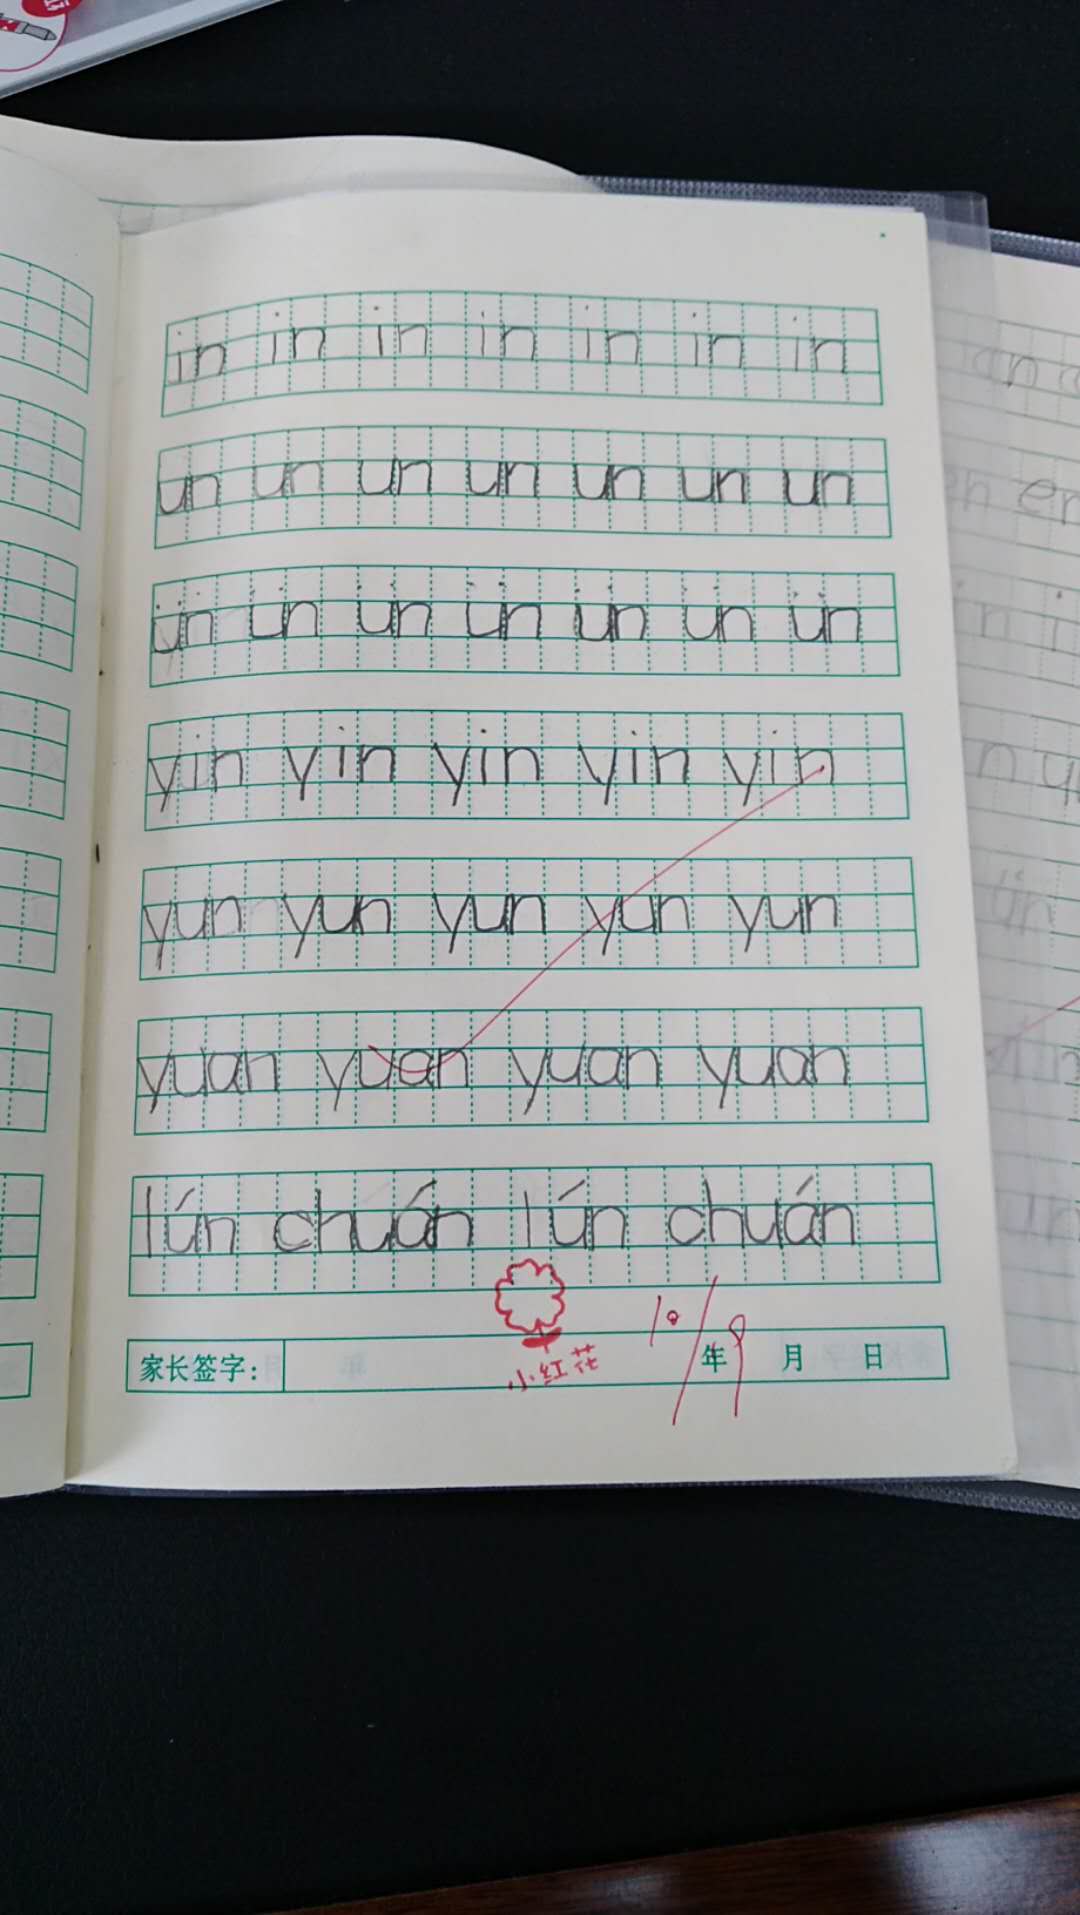 in in in in in in in
un un un un un un un
ün ün ün ün ün ün ün
yin yin yin yin yin
yun yun yun yun yun
yuan yuan yuan yuan
lún chuán lún chuán
小红花
10/9
家长签字: 年 月 日
an
en en
in
ün